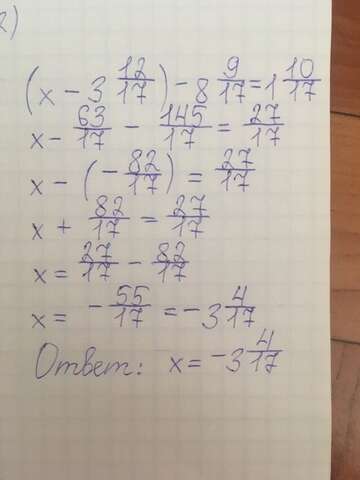 2)
(x - 3 12/17) - 8 9/17 = 1 10/17
x - 63/17 - 145/17 = 27/17
x - (- 82/17) = 27/17
x + 82/17 = 27/17
x = 27/17 - 82/17
x = - 55/17 = - 3 4/17
Ответ: x = - 3 4/17